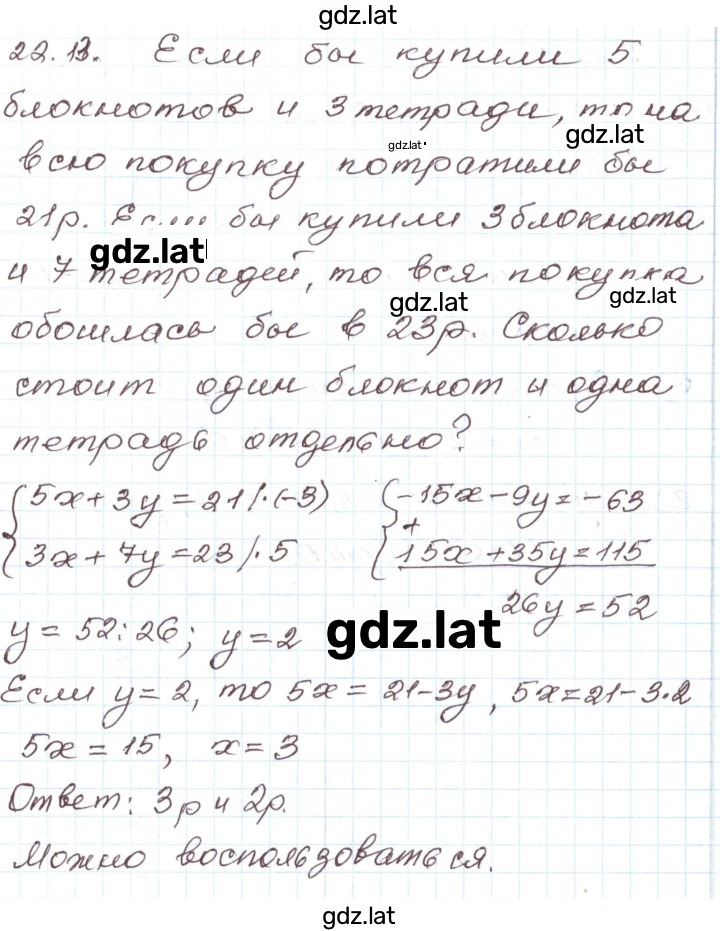 gdz.lat
22.13. Если бы купили 5
блокнотов и 3 тетради, то на
gdz.lat
gdz.lat
всю покупку потратили бы
21р. Если бы купили 3 блокнота
gdz.lat
и 7 тетрадей, то вся покупка
gdz.lat
gdz.lat
обошлась бы в 23р. Сколько
стоит один блокнот и одна
тетрадь отдельно?
{5x + 3y = 21 /·(-3) {-15x - 9y = -63
+
{3x + 7y = 23 /·5 {15x + 35y = 115
26y = 52
y = 52:26; y = 2
gdz.lat
Если y = 2, то 5x = 21-3y, 5x = 21-3·2
5x = 15, x = 3
Ответ: 3р и 2р.
Можно воспользоваться.
gdz.lat